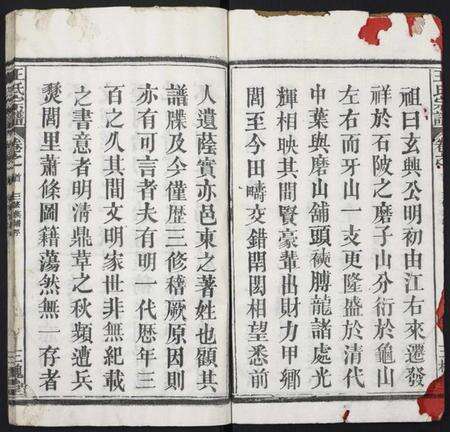 祖曰玄興公明初由江右來遷發
祥於石陂之磨子山分衍於龜山
左右而牙山一支更隆盛於清代
中葉與磨山舖頭硤膊龍諸處光
輝相映其間賢豪輩出財力甲鄉
閭至今田疇交錯閈閎相望悉前
王氏宗譜 卷之首
人遺蔭實亦邑東之著姓也顧其
譜牒及今僅歷三修稽厥原因則
亦有可言者夫有明一代歷年三
百之久其間文明家世非無紀載
之書意者明清鼎革之秋頻遭兵
燹閭里蕭條圖籍蕩然無一存者